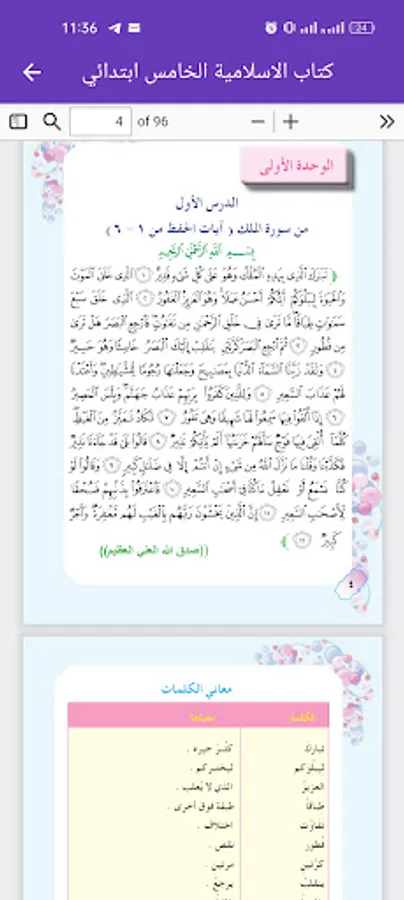 11:36
24
كتاب الاسلامية الخامس ابتدائي
4 of 96
الوحدة الأولى
الدرس الأول
من سورة الملك ( آيات الحفظ من ١ – ٦ )
بِسْمِ اللَّهِ الرَّحْمَٰنِ الرَّحِيمِ
﴿ تَبَارَكَ الَّذِي بِيَدِهِ الْمُلْكُ وَهُوَ عَلَىٰ كُلِّ شَيْءٍ قَدِيرٌ ١ الَّذِي خَلَقَ الْمَوْتَ
وَالْحَيَاةَ لِيَبْلُوَكُمْ أَيُّكُمْ أَحْسَنُ عَمَلًا وَهُوَ الْعَزِيزُ الْغَفُورُ ٢ الَّذِي خَلَقَ سَبْعَ
سَمَاوَاتٍ طِبَاقًا مَّا تَرَىٰ فِي خَلْقِ الرَّحْمَٰنِ مِن تَفَاوُتٍ فَارْجِعِ الْبَصَرَ هَلْ تَرَىٰ
مِن فُطُورٍ ٣ ثُمَّ ارْجِعِ الْبَصَرَ كَرَّتَيْنِ يَنقَلِبْ إِلَيْكَ الْبَصَرُ خَاسِئًا وَهُوَ حَسِيرٌ
٤ وَلَقَدْ زَيَّنَّا السَّمَاءَ الدُّنْيَا بِمَصَابِيحَ وَجَعَلْنَاهَا رُجُومًا لِّلشَّيَاطِينِ وَأَعْتَدْنَا
لَهُمْ عَذَابَ السَّعِيرِ ٥ وَلِلَّذِينَ كَفَرُوا بِرَبِّهِمْ عَذَابُ جَهَنَّمَ وَبِئْسَ الْمَصِيرُ
٦ إِذَا أُلْقُوا فِيهَا سَمِعُوا لَهَا شَهِيقًا وَهِيَ تَفُورُ ٧ تَكَادُ تَمَيَّزُ مِنَ الْغَيْظِ
كُلَّمَا أُلْقِيَ فِيهَا فَوْجٌ سَأَلَهُمْ خَزَنَتُهَا أَلَمْ يَأْتِكُمْ نَذِيرٌ ٨ قَالُوا بَلَىٰ قَدْ جَاءَنَا نَذِيرٌ
فَكَذَّبْنَا وَقُلْنَا مَا نَزَّلَ اللَّهُ مِن شَيْءٍ إِنْ أَنتُمْ إِلَّا فِي ضَلَالٍ كَبِيرٍ ٩ وَقَالُوا لَوْ
كُنَّا نَسْمَعُ أَوْ نَعْقِلُ مَا كُنَّا فِي أَصْحَابِ السَّعِيرِ ١٠ فَاعْتَرَفُوا بِذَنبِهِمْ فَسُحْقًا
لِّأَصْحَابِ السَّعِيرِ ١١ إِنَّ الَّذِينَ يَخْشَوْنَ رَبَّهُم بِالْغَيْبِ لَهُم مَّغْفِرَةٌ وَأَجْرٌ
كَبِيرٌ ١٢ ﴾
((صدق الله العلي العظيم))
٤
معاني الكلمات
الكلمة معناها
تبارك كثُرَ خيره .
ليبلُوَكم ليختبركم .
العزيزُ الذي لا يُغلب .
طباقاً طبقة فوق أخرى .
تفاوُت اختلاف .
فُطور نقص .
كرّتين مرتين .
ينقلبْ يرجعْ .